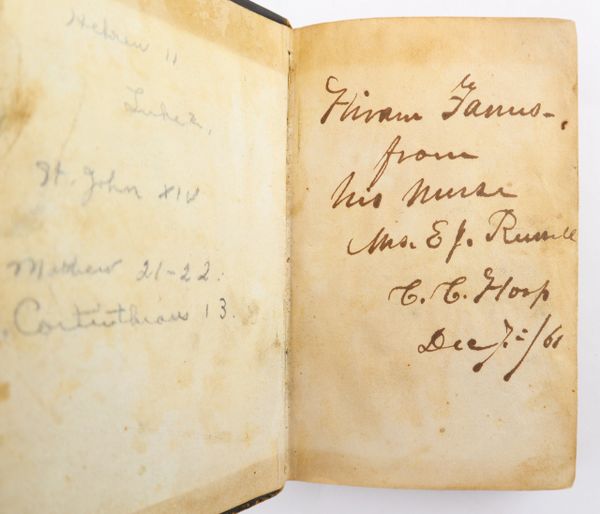 Hebrew 11
Luke 2,
St. John XIV
Mathew 21-22.
Corinthians 13.
Hiram
from
his Nurse
Mrs. E J. Russell
C. C. Hosp
Dec 7 /61